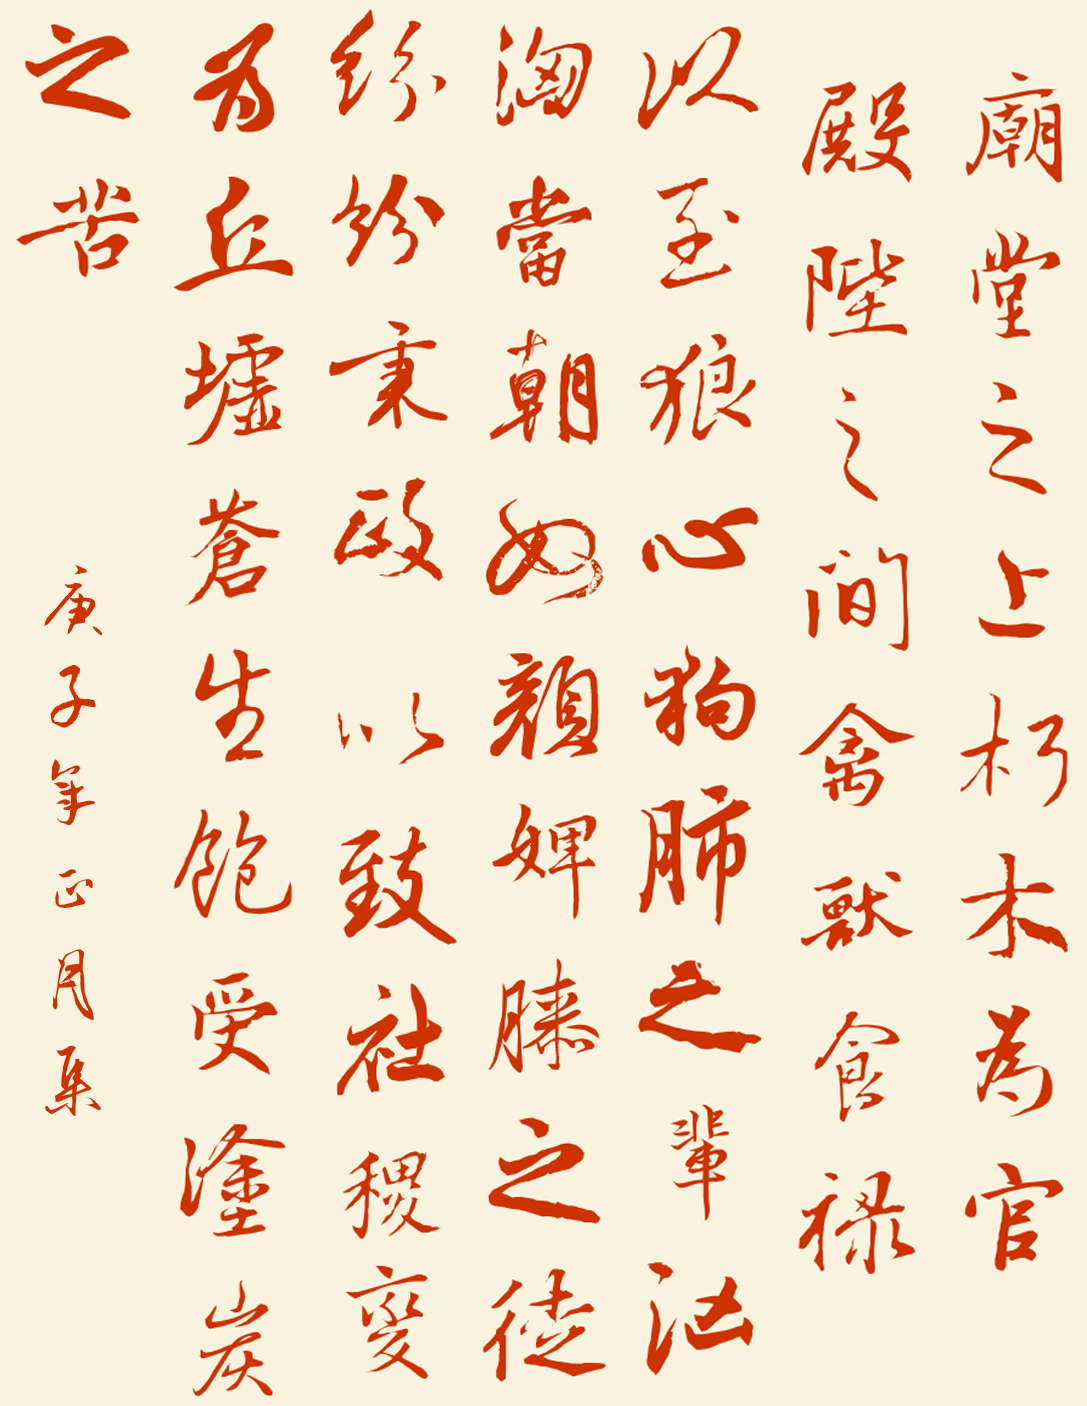 廟堂之上朽木為官
殿陛之間禽獸食禄
以至狼心狗肺之輩汹
洶當朝奴顔婢膝之徒
紛紛秉政以致社稷變
為丘墟蒼生飽受塗炭
之苦
庚子年正月集